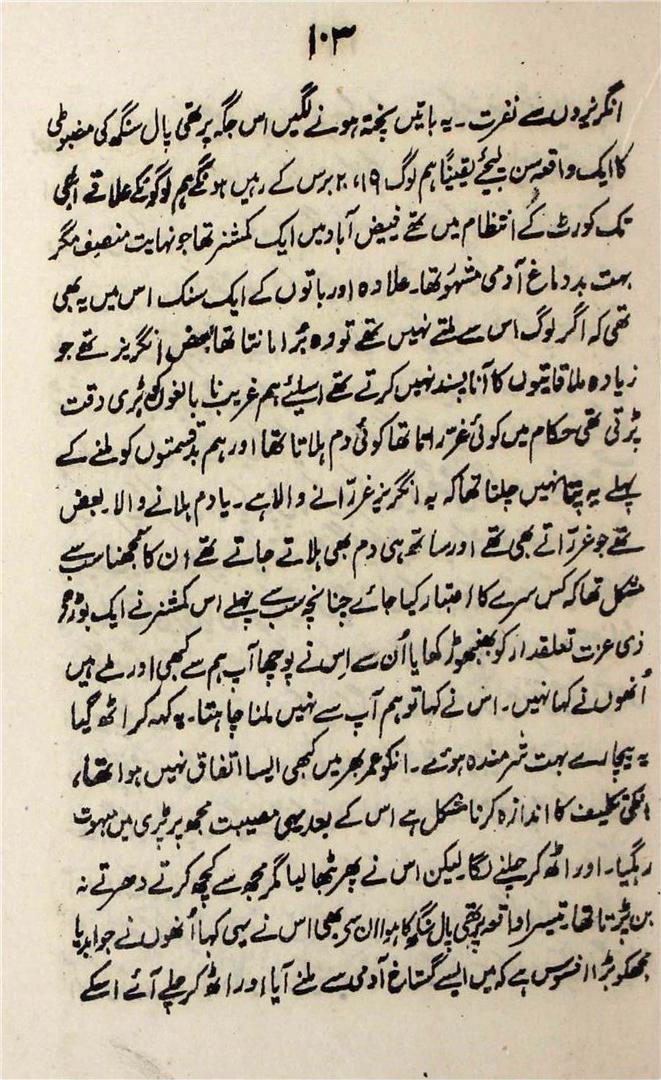 ۱۰۳
انگریزوں سے نفرت ۔ یہ باتیں پختہ ہونے لگیں اس جگہ پرتھی پال سنگھ کی مضبوطی
کا ایک واقعہ سن لیجئے یقیناً ہم لوگ ۱۹، ۲۰ برس کے رہیں ہونگے ہم لوگونکے علاقے ابھی
تک کورٹ کے انتظام میں تھے فیض آباد میں ایک کمشنر تھا جو نہایت منصف مگر
بہت بد دماغ آدمی مشہور تھا۔ علاوہ اور باتوں کے ایک سنک اس میں یہ بھی
تھی کہ اگر لوگ اس سے ملتے نہیں تھے تو وہ بُرا مانتا تھا بعض انگریز تھے جو
زیادہ ملاقاتیوں کا آنا پسند نہیں کرتے تھے اسلئے ہم غریب نابالغوں کو بڑی دقت
پڑتی تھی حکام میں کوئی غرّاتا تھا کوئی دم ہلاتا تھا اور ہم بدقسمتوں کو ملنے کے
پہلے یہ پتا نہیں چلتا تھا کہ یہ انگریز غرّانے والا ہے ۔ یا دم ہلانے والا ۔ بعض
تھے جو غرّاتے بھی تھے اور ساتھ ہی دم بھی ہلاتے جاتے تھے ان کا سمجھنا سب سے
مشکل تھا کہ کس سرے کا اعتبار کیا جائے چنانچہ سب سے پہلے اس کمشنر نے ایک بوڑھے
ذی عزت تعلقدار کو بھنبھوڑ کھایا اُن سے اِس نے پوچھا آپ ہم سے کبھی اور ملے ہیں
اُنھوں نے کہا نہیں ۔ اس نے کہا تو ہم آپ سے نہیں ملنا چاہتا ۔ یہ کہہ کر اٹھ گیا
یہ بیچارے بہت شرمندہ ہوئے ۔ انکو عمر بھر میں کبھی ایسا اتفاق نہیں ہوا تھا،
انکی تکلیف کا اندازہ کرنا مشکل ہے اس کے بعد یہی مصیبت مجھ پر پڑی میں مبہوت
رہگیا ۔ اور اٹھ کر چلنے لگا لیکن اس نے پھر بٹھا لیا مگر مجھ سے کچھ کرتے دھرتے نہ
بن پڑتا تھا۔ تیسرا واقعہ پرتھی پال سنگھ کا ہوا ان سے بھی اس نے یہی کہا اُنھوں نے جواب دیا
مجھکو بڑا افسوس ہے کہ میں ایسے گستاخ آدمی سے ملنے آیا اور اٹھ کر چلے آئے اسکے